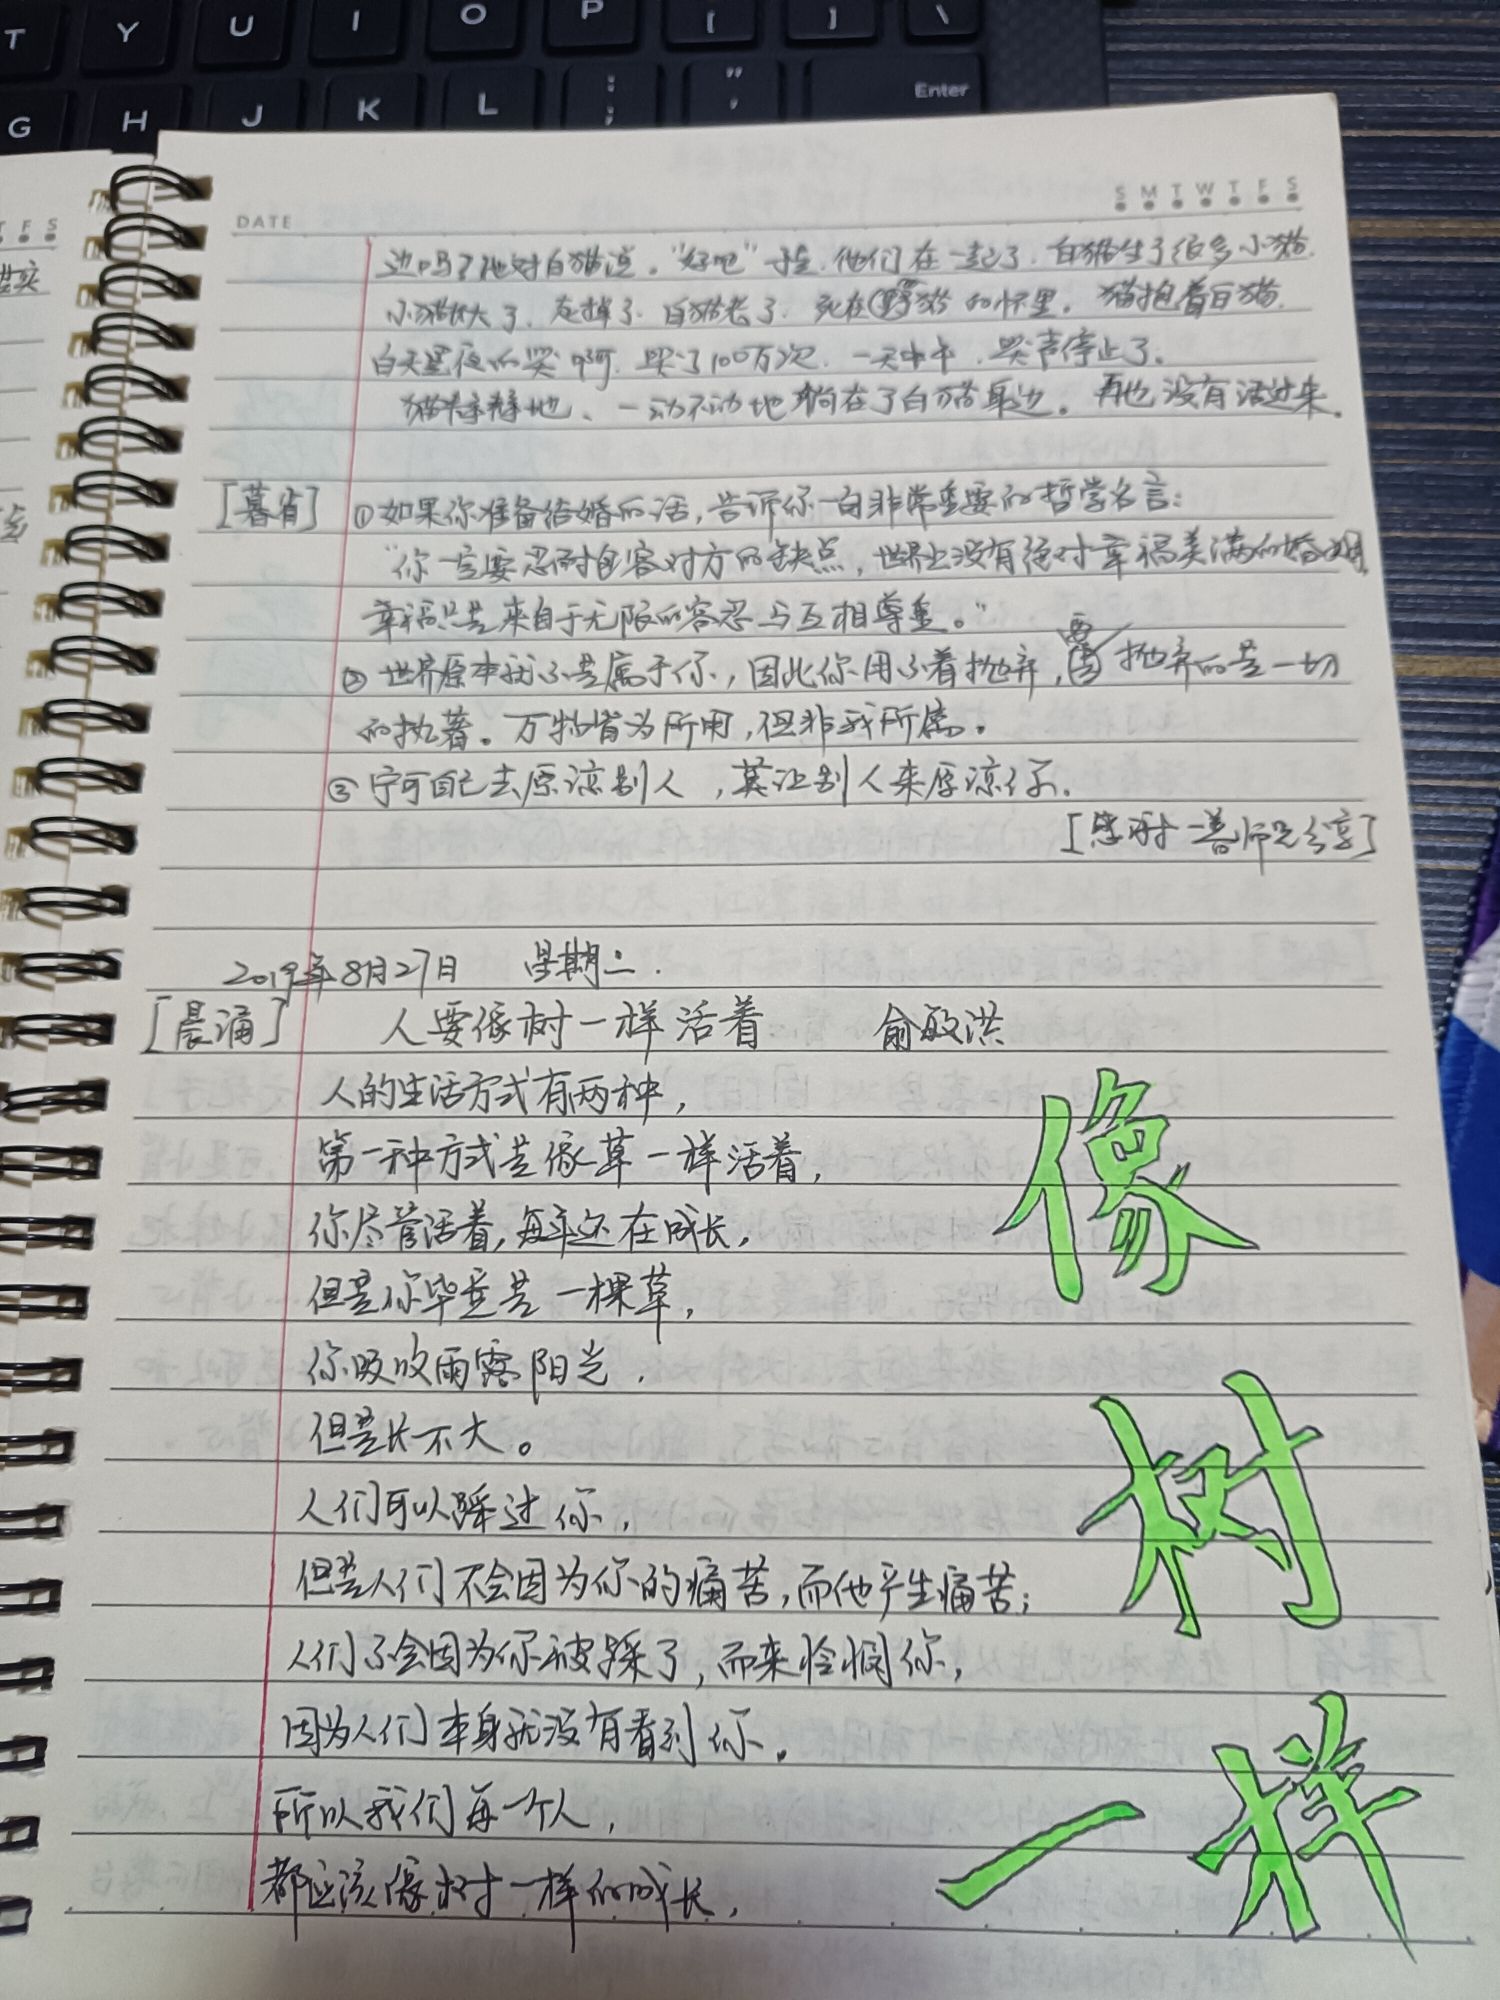 T Y U I O P [ ] \
G H J K L : ; " ' Enter
T F S
DATE
S M T W T F S
边吗？他对白猫说。“好吧”于是，他们在一起了，白猫生了很多小猫，
小猫长大了，走掉了，白猫老了，死在野猫的怀里。猫抱着白猫，
白天黑夜的哭啊，哭了100万次，一天中午，哭声停止了。
猫静静地、一动不动地躺在了白猫身边。再也没有活过来。
[暮省] ①如果你准备结婚的话，告诉你一句非常重要的哲学名言：
“你一定要忍耐包容对方的缺点，世界上没有绝对幸福美满的婚姻，
幸福只是来自于无限的容忍与互相尊重。”
②世界原本就不是属于你，因此你用不着抛弃，要抛弃的是一切
的执著。万物皆为所用，但非我所属。
③宁可自己去原谅别人，莫让别人来原谅你。
[感谢一善师兄分享]
2019年8月27日 星期二.
[晨诵] 人要像树一样活着 俞敏洪
人的生活方式有两种，
第一种方式是像草一样活着，
你尽管活着，每年还在成长，
但是你毕竟是一棵草，
你吸收雨露阳光，
但是长不大。
人们可以踩过你，
但是人们不会因为你的痛苦，而他产生痛苦；
人们不会因为你被踩了，而来怜悯你，
因为人们本身就没有看到你。
所以我们每一个人，
都应该像树一样的成长，
像
树
一样